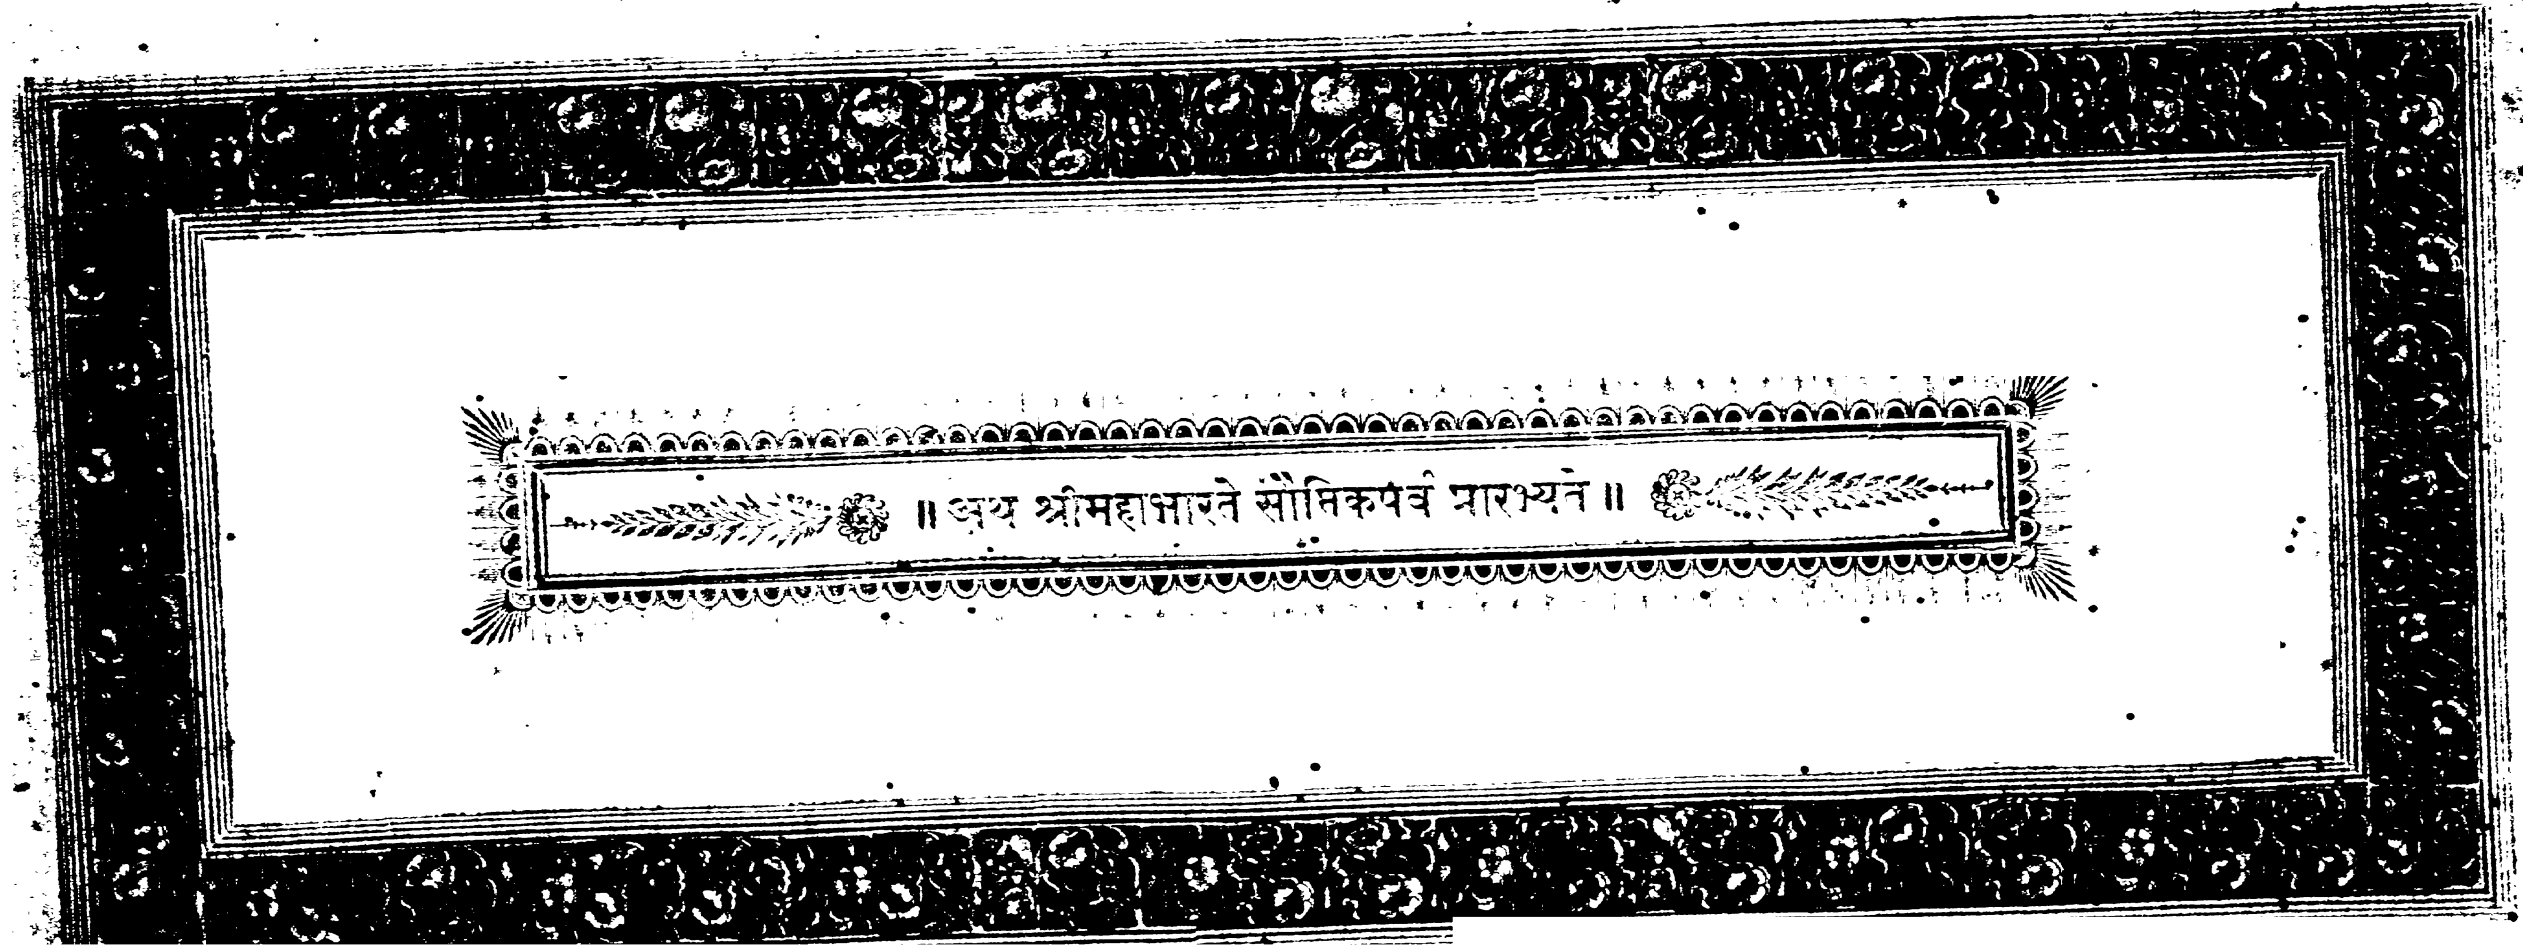 ॥ अथ श्रीमहाभारते सौप्तिकपर्व प्रारभ्यते ॥